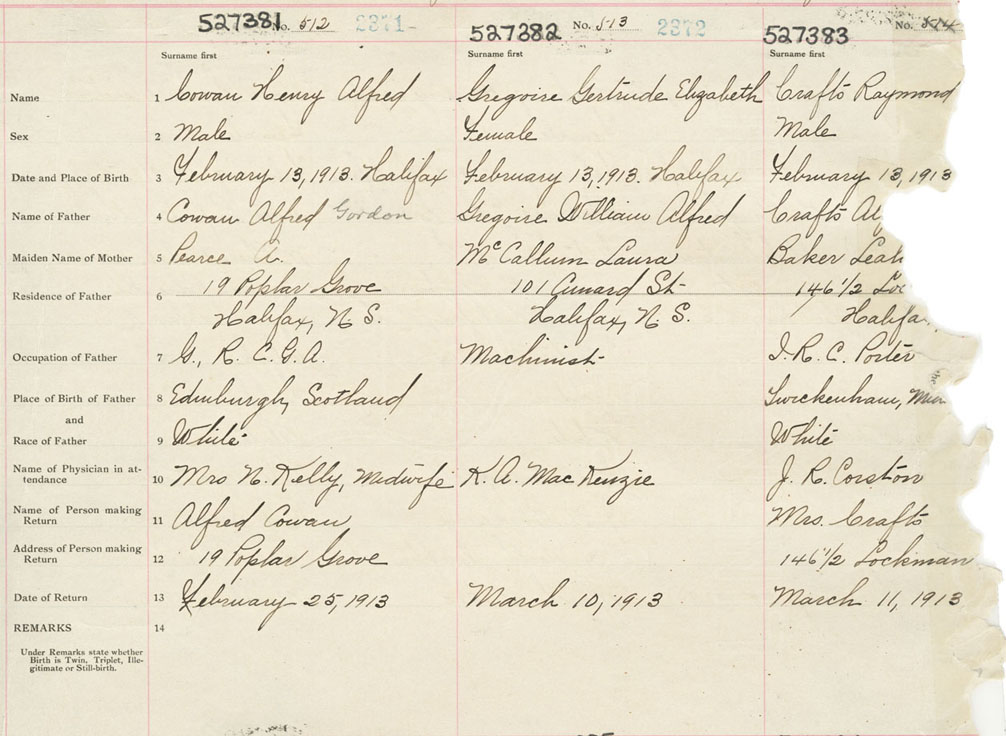 527381 No. 512 2371 527382 No. 513 2372 527383 No. 514
Surname first Surname first Surname first
Name 1 Cowan Henry Alfred Gregoire Gertrude Elizabeth Crafts Raymond
Sex 2 Male Female Male
Date and Place of Birth 3 February 13, 1913. Halifax February 13, 1913. Halifax February 13, 1913
Name of Father 4 Cowan Alfred Gordon Gregoire William Alfred Crafts Al
Maiden Name of Mother 5 Pearce A. McCallum Laura Baker Leah
19 Poplar Grove 101 Cunard St. 146 1/2 Loc
Residence of Father 6
Halifax, N S. Halifax, N S. Halifa
Occupation of Father 7 G., R. C. G. A. Machinist I. R. C. Porter
Place of Birth of Father 8 Edinburgh, Scotland Twickenham,
and
Race of Father 9 White White
Name of Physician in at-
tendance 10 Mrs N. Kelly, Midwife K. A. MacKenzie J. R. Corston
Name of Person making
Return 11 Alfred Cowan Mrs. Crafts
Address of Person making
Return 12 19 Poplar Grove 146 1/2 Lockman
Date of Return 13 February 25, 1913 March 10, 1913 March 11, 1913
REMARKS 14
Under Remarks state whether
Birth is Twin, Triplet, Ille-
gitimate or Still-birth.